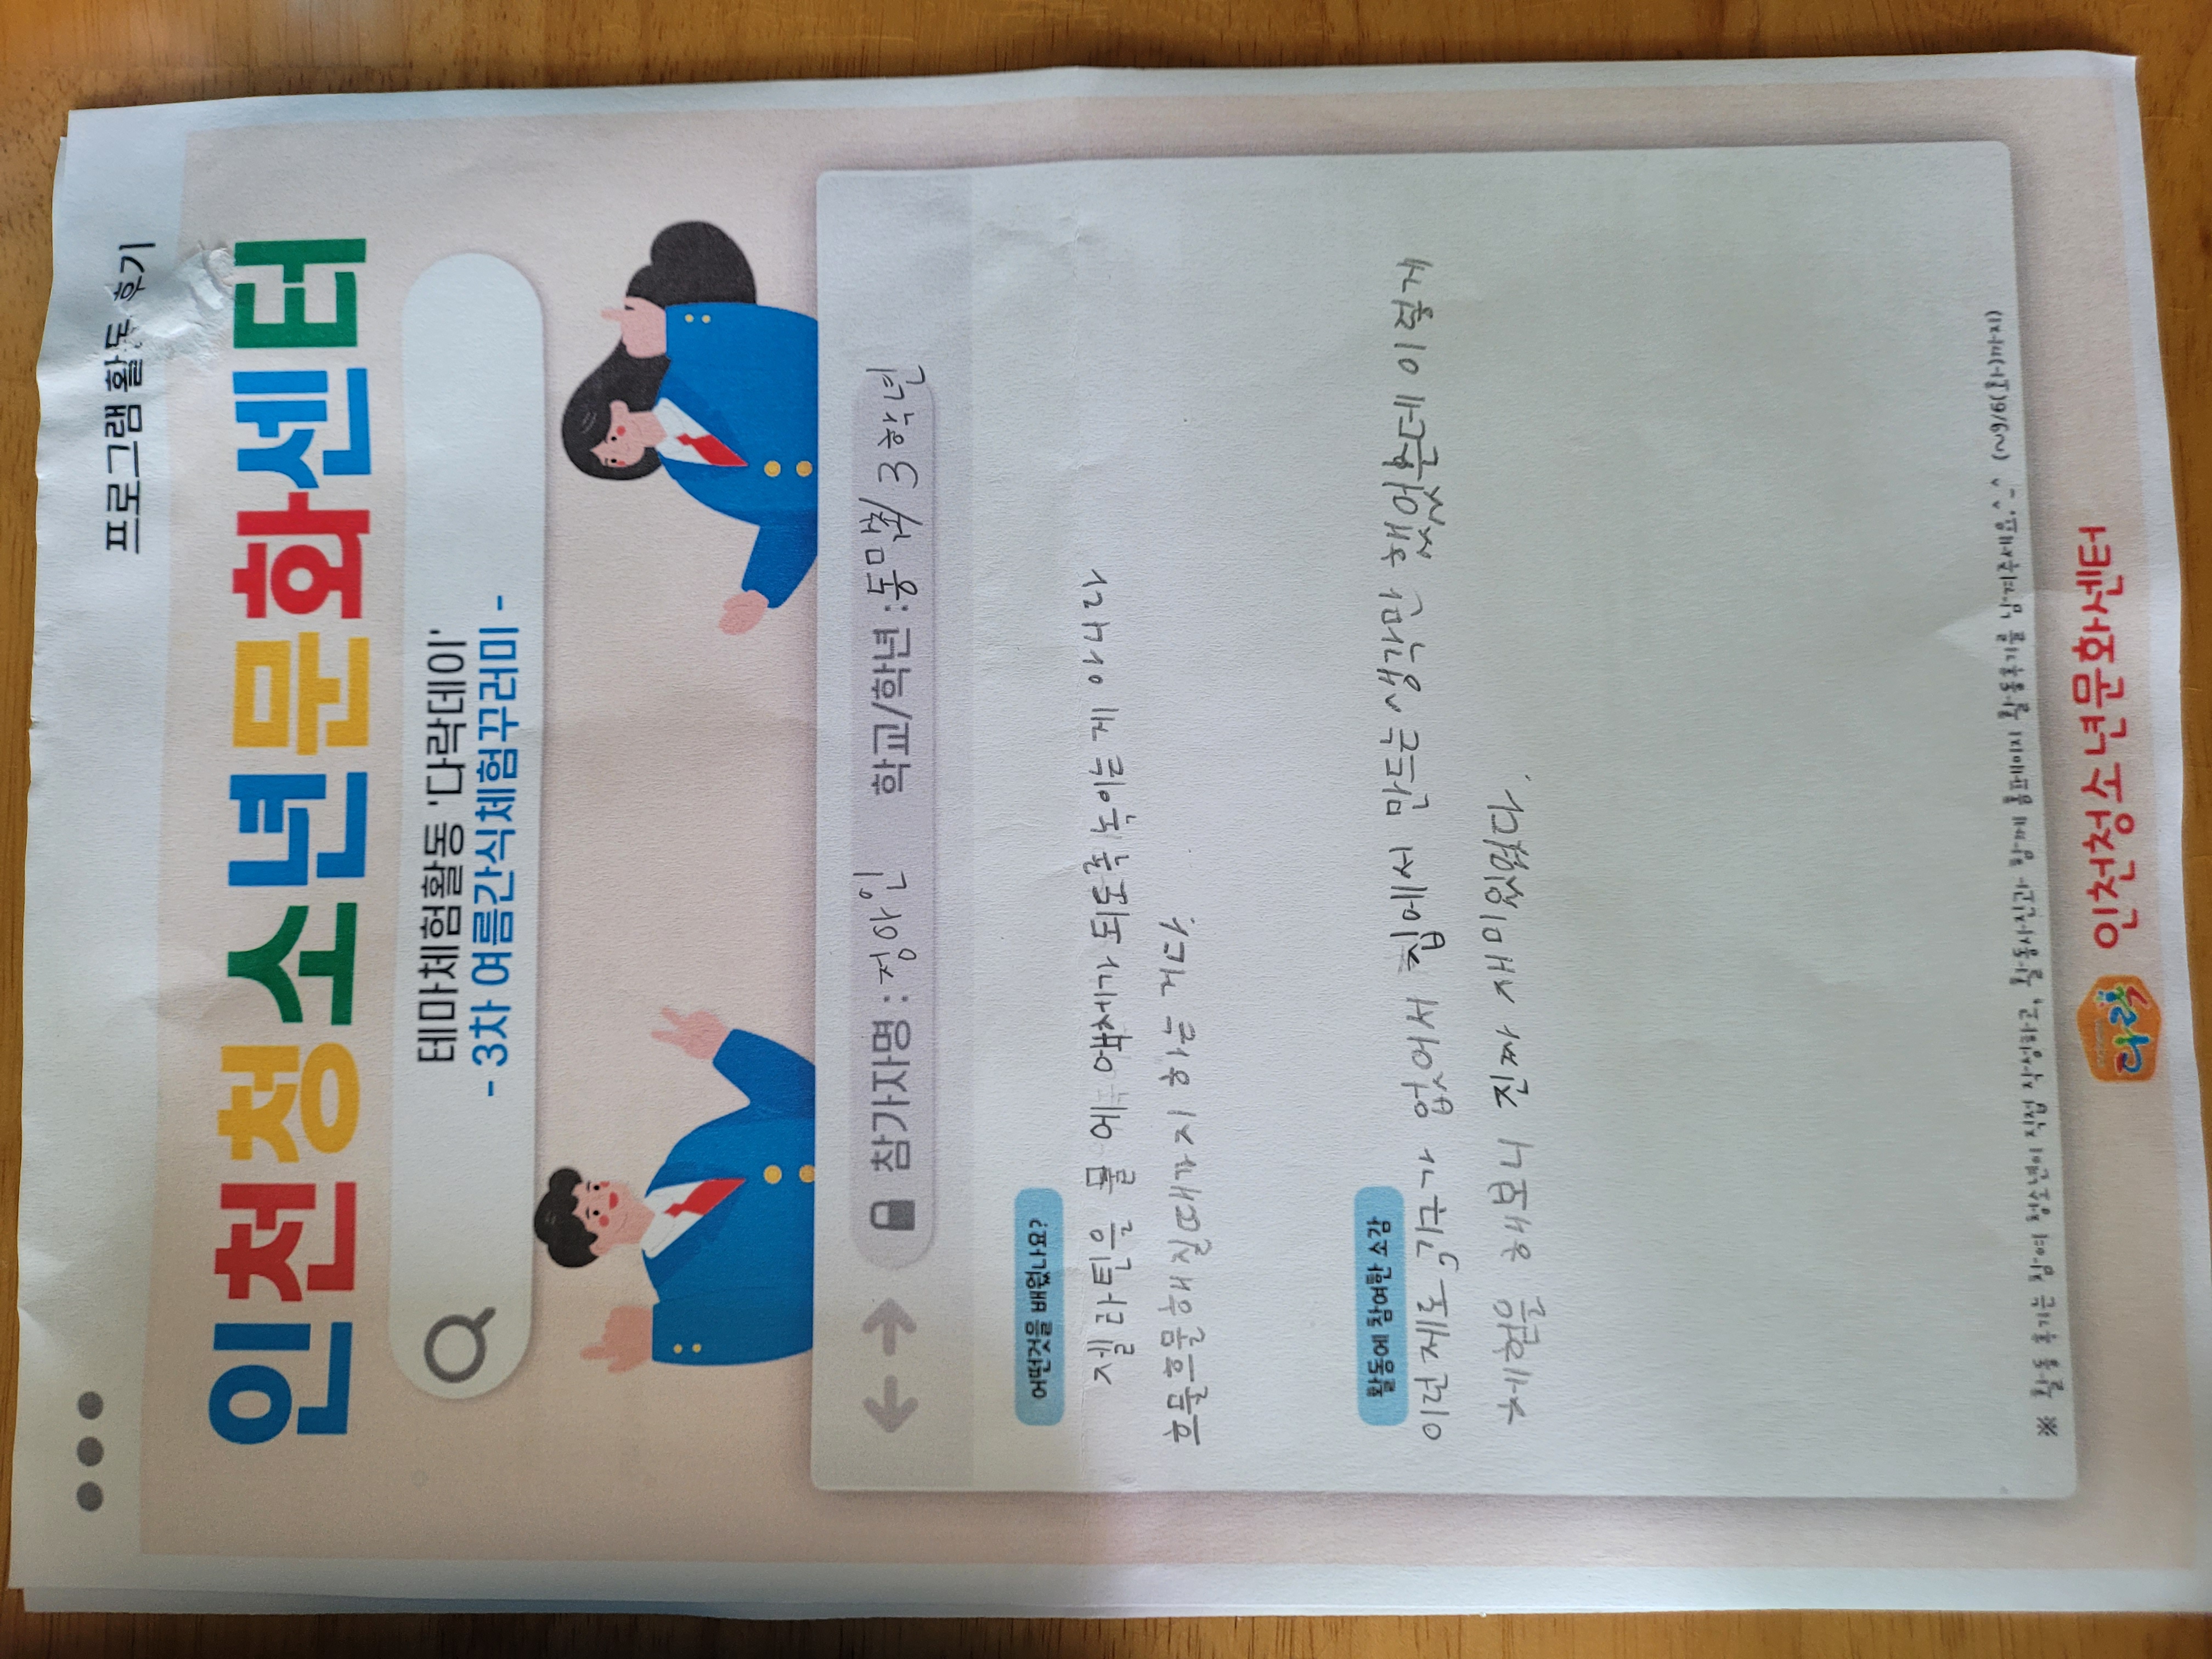 프로그램 활동 후기
인천청소년문화센터
테마체험활동 '다락데이'
- 3차 여름간식체험꾸러미 -
참가자명 : 정아인 학교/학년 : 동막초/ 3학년
어떤것을 배웠나요?
젤라틴을 물에 액체가 되도록 녹이는 게 아니라
흐물흐물해질때까지 하는 거다.
활동에 참여한 소감
이런 재료, 기구가 없어서 집에서 만드는 생각만 했었는데 이렇게
체험을 해보니 진짜 재미있었다.
※ 활동 후기는 참여 청소년이 직접 작성하고, 활동사진과 함께 홈페이지 활동후기를 남겨주세요.^-^ (~9/6(월)까지)
다락 인천청소년문화센터